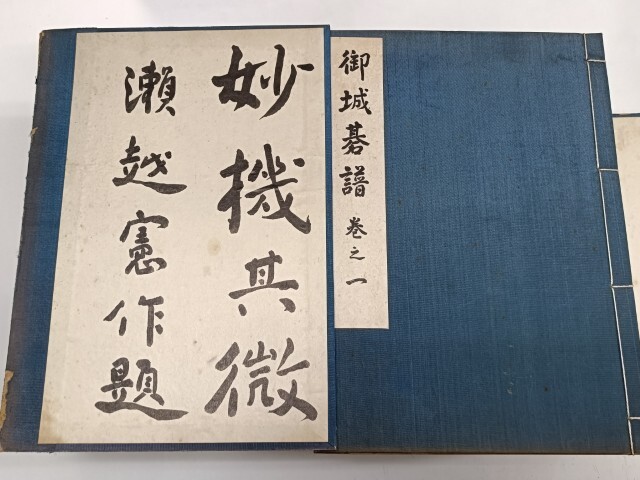 妙機其微
瀬越憲作題
御城碁譜 巻之一